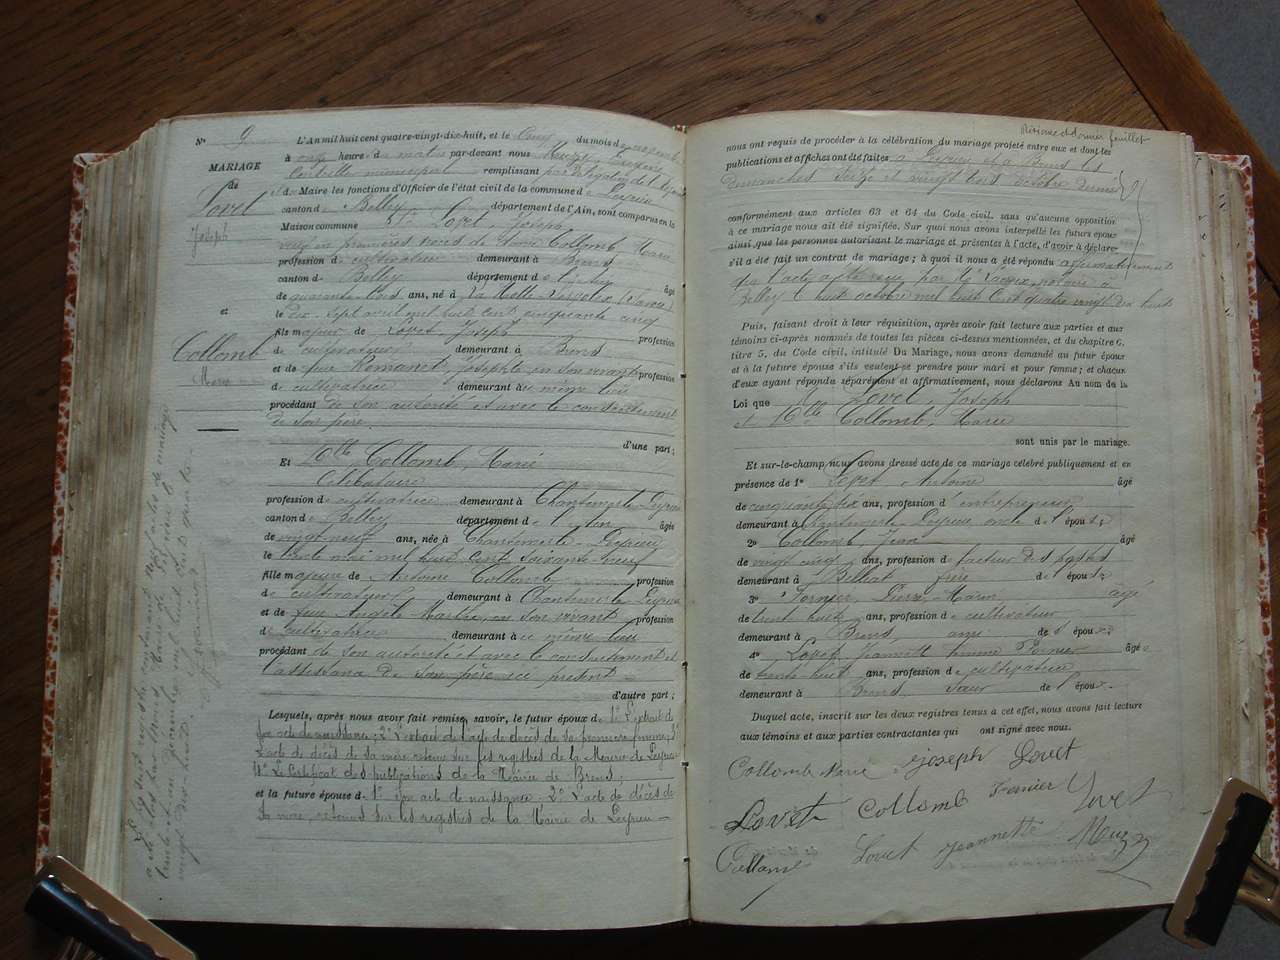 N° 9
MARIAGE
de
Lovet
Joseph
et
Collomb
Marie
L'An mil huit cent quatre-vingt-dix-huit, et le onze du mois de novembre
à onze heure du matin par-devant nous
Conseiller municipal remplissant par délégation
de Maire les fonctions d'Officier de l'état civil de la commune de Peyrieu
canton de Belley département de l'Ain, sont comparus en la
Maison commune Lovet, Joseph
veuf en premières noces de Collomb Marie
profession de cultivateur demeurant à Brens
canton de Belley département de l'Ain âgé
de quarante trois ans, né à La Motte-Servolex (Savoie)
le dix-sept avril mil huit cent cinquante cinq
fils majeur de Lovet, Joseph profession
de cultivateur demeurant à Brens
et de feue Romanet, Josephte en son vivant profession
de cultivatrice demeurant à même lieu
procédant de son autorité et avec le consentement
de son père.
d'une part;
Et Mlle Collomb, Marie
Célibataire
profession de cultivatrice demeurant à Chantemerle-Peyrieu
canton de Belley département de l'Ain âgée
de vingt-neuf ans, née à Chantemerle-Peyrieu
le trente mai mil huit cent soixante-neuf
fille majeure de Antoine Collomb profession
de cultivateur demeurant à Chantemerle Peyrieu
et de feue Angèle en son vivant profession
de cultivatrice demeurant à même lieu
procédant de son autorité et avec le consentement et
l'assistance de son père ici présent
d'autre part;
Lesquels, après nous avoir fait remise, savoir, le futur époux de 1° l'extrait de
son acte de naissance; 2° l'extrait de l'acte de décès de sa première femme; 3°
l'acte de décès de sa mère retenu sur les registres de la Mairie de Peyrieu
4° Le Certificat des publications de la Mairie de Brens;
et la future épouse de 1° son acte de naissance 2° L'acte de décès de
sa mère, retenus sur les registres de la Mairie de Peyrieu
nous ont requis de procéder à la célébration du mariage projeté entre eux et dont les
publications et affiches ont été faites à Peyrieu et à Brens les
dimanches seize et vingt trois octobre dernier
conformément aux articles 63 et 64 du Code civil, sans qu'aucune opposition
à ce mariage nous ait été signifiée. Sur quoi nous avons interpellé les futurs époux
ainsi que les personnes autorisant le mariage et présentes à l'acte, d'avoir à déclarer
s'il a été fait un contrat de mariage; à quoi il nous a été répondu affirmativement
que l'acte a été reçu par Me notaire à
Belley le huit octobre mil huit cent quatre vingt dix huit
Puis, faisant droit à leur réquisition, après avoir fait lecture aux parties et aux
témoins ci-après nommés de toutes les pièces ci-dessus mentionnées, et du chapitre 6,
titre 5, du Code civil, intitulé Du Mariage, nous avons demandé au futur époux
et à la future épouse s'ils veulent se prendre pour mari et pour femme; et chacun
d'eux ayant répondu séparément et affirmativement, nous déclarons Au nom de la
Loi que Mr Lovet, Joseph
et Mlle Collomb, Marie
sont unis par le mariage.
Et sur-le-champ nous avons dressé acte de ce mariage célébré publiquement et en
présence de 1° Lovet Antoine âgé
de cinquante six ans, profession d'entrepreneur
demeurant à Chantemerle-Peyrieu oncle de l'époux;
2° Collomb Jean âgé
de vingt cinq ans, profession de facteur des postes
demeurant à frère de l'épouse
3° Fornier, Pierre-Marie âgé
de trente huit ans, profession de cultivateur
demeurant à Brens ami de époux
4° Lovet Jeannette femme Fornier âgée
de trente-huit ans, profession de cultivatrice
demeurant à Brens sœur de l'époux.
Duquel acte, inscrit sur les deux registres tenus à cet effet, nous avons fait lecture
aux témoins et aux parties contractantes qui ont signé avec nous.
Collomb Marie Joseph Lovet
Lovet Collomb Fornier Lovet
Collomb Lovet Jeannette